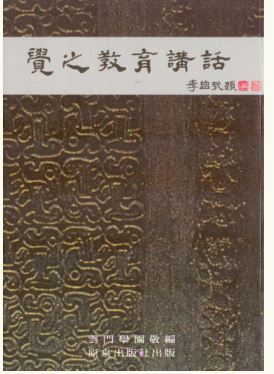 覺之教育講話
李啟民題
雲門學園敬編
原泉出版社出版